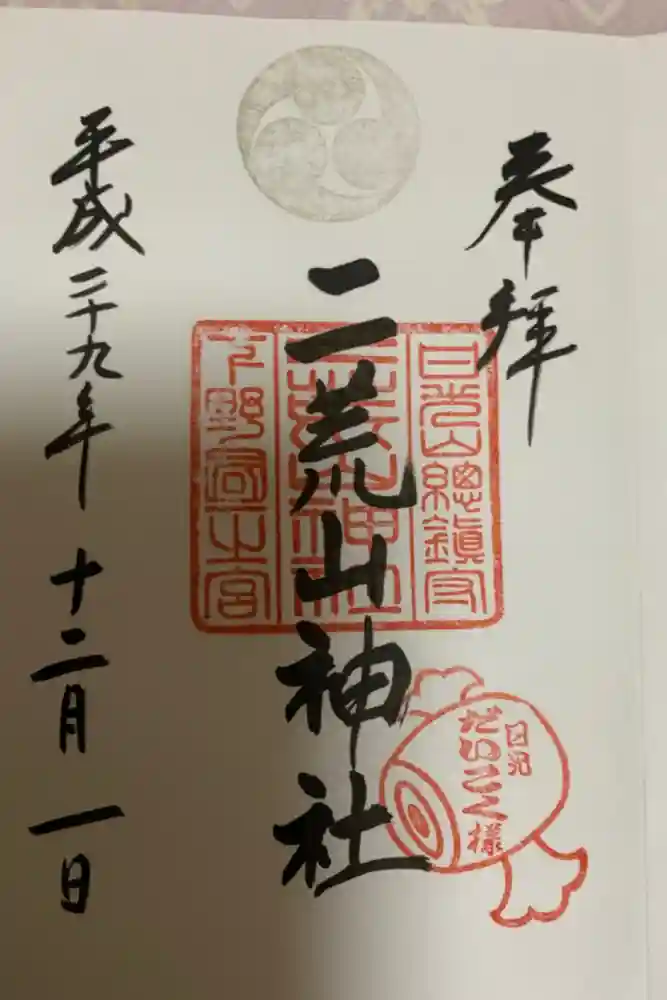 奉拝
日光山總鎮守
二荒山神社
二荒山神社
下野國一之宮
日光
だいこく様
平成二十九年 十二月 一日